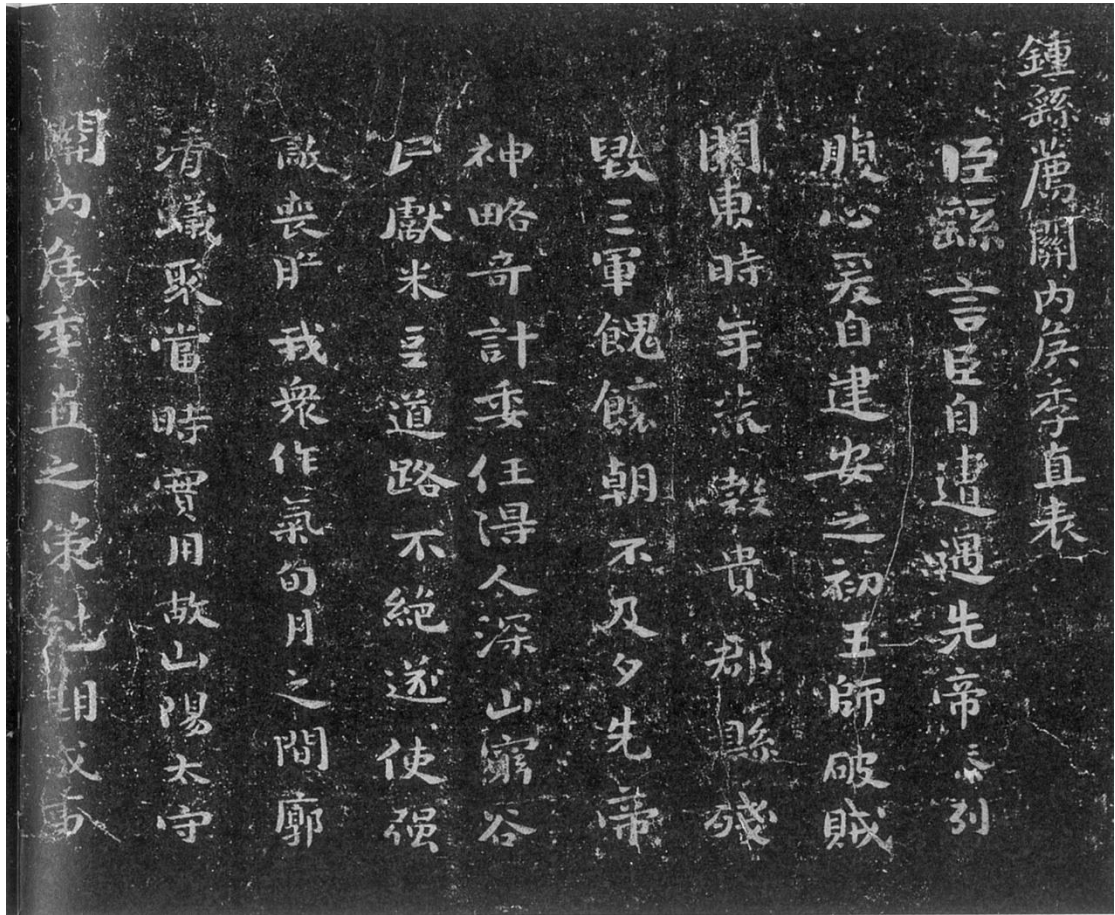 鍾繇薦關內侯季直表
臣繇言臣自遭遇先帝忝列
腹心爰自建安之初王師破賊
關東時年荒穀貴郡縣殘
毀三軍餽饟朝不及夕先帝
神略奇計委任得人深山窮谷
民獻米豆道路不絕遂使强
敵喪膽我眾作氣旬月之間廓
清蟻聚當時實用故山陽太守
關內侯季直之策剋期成事